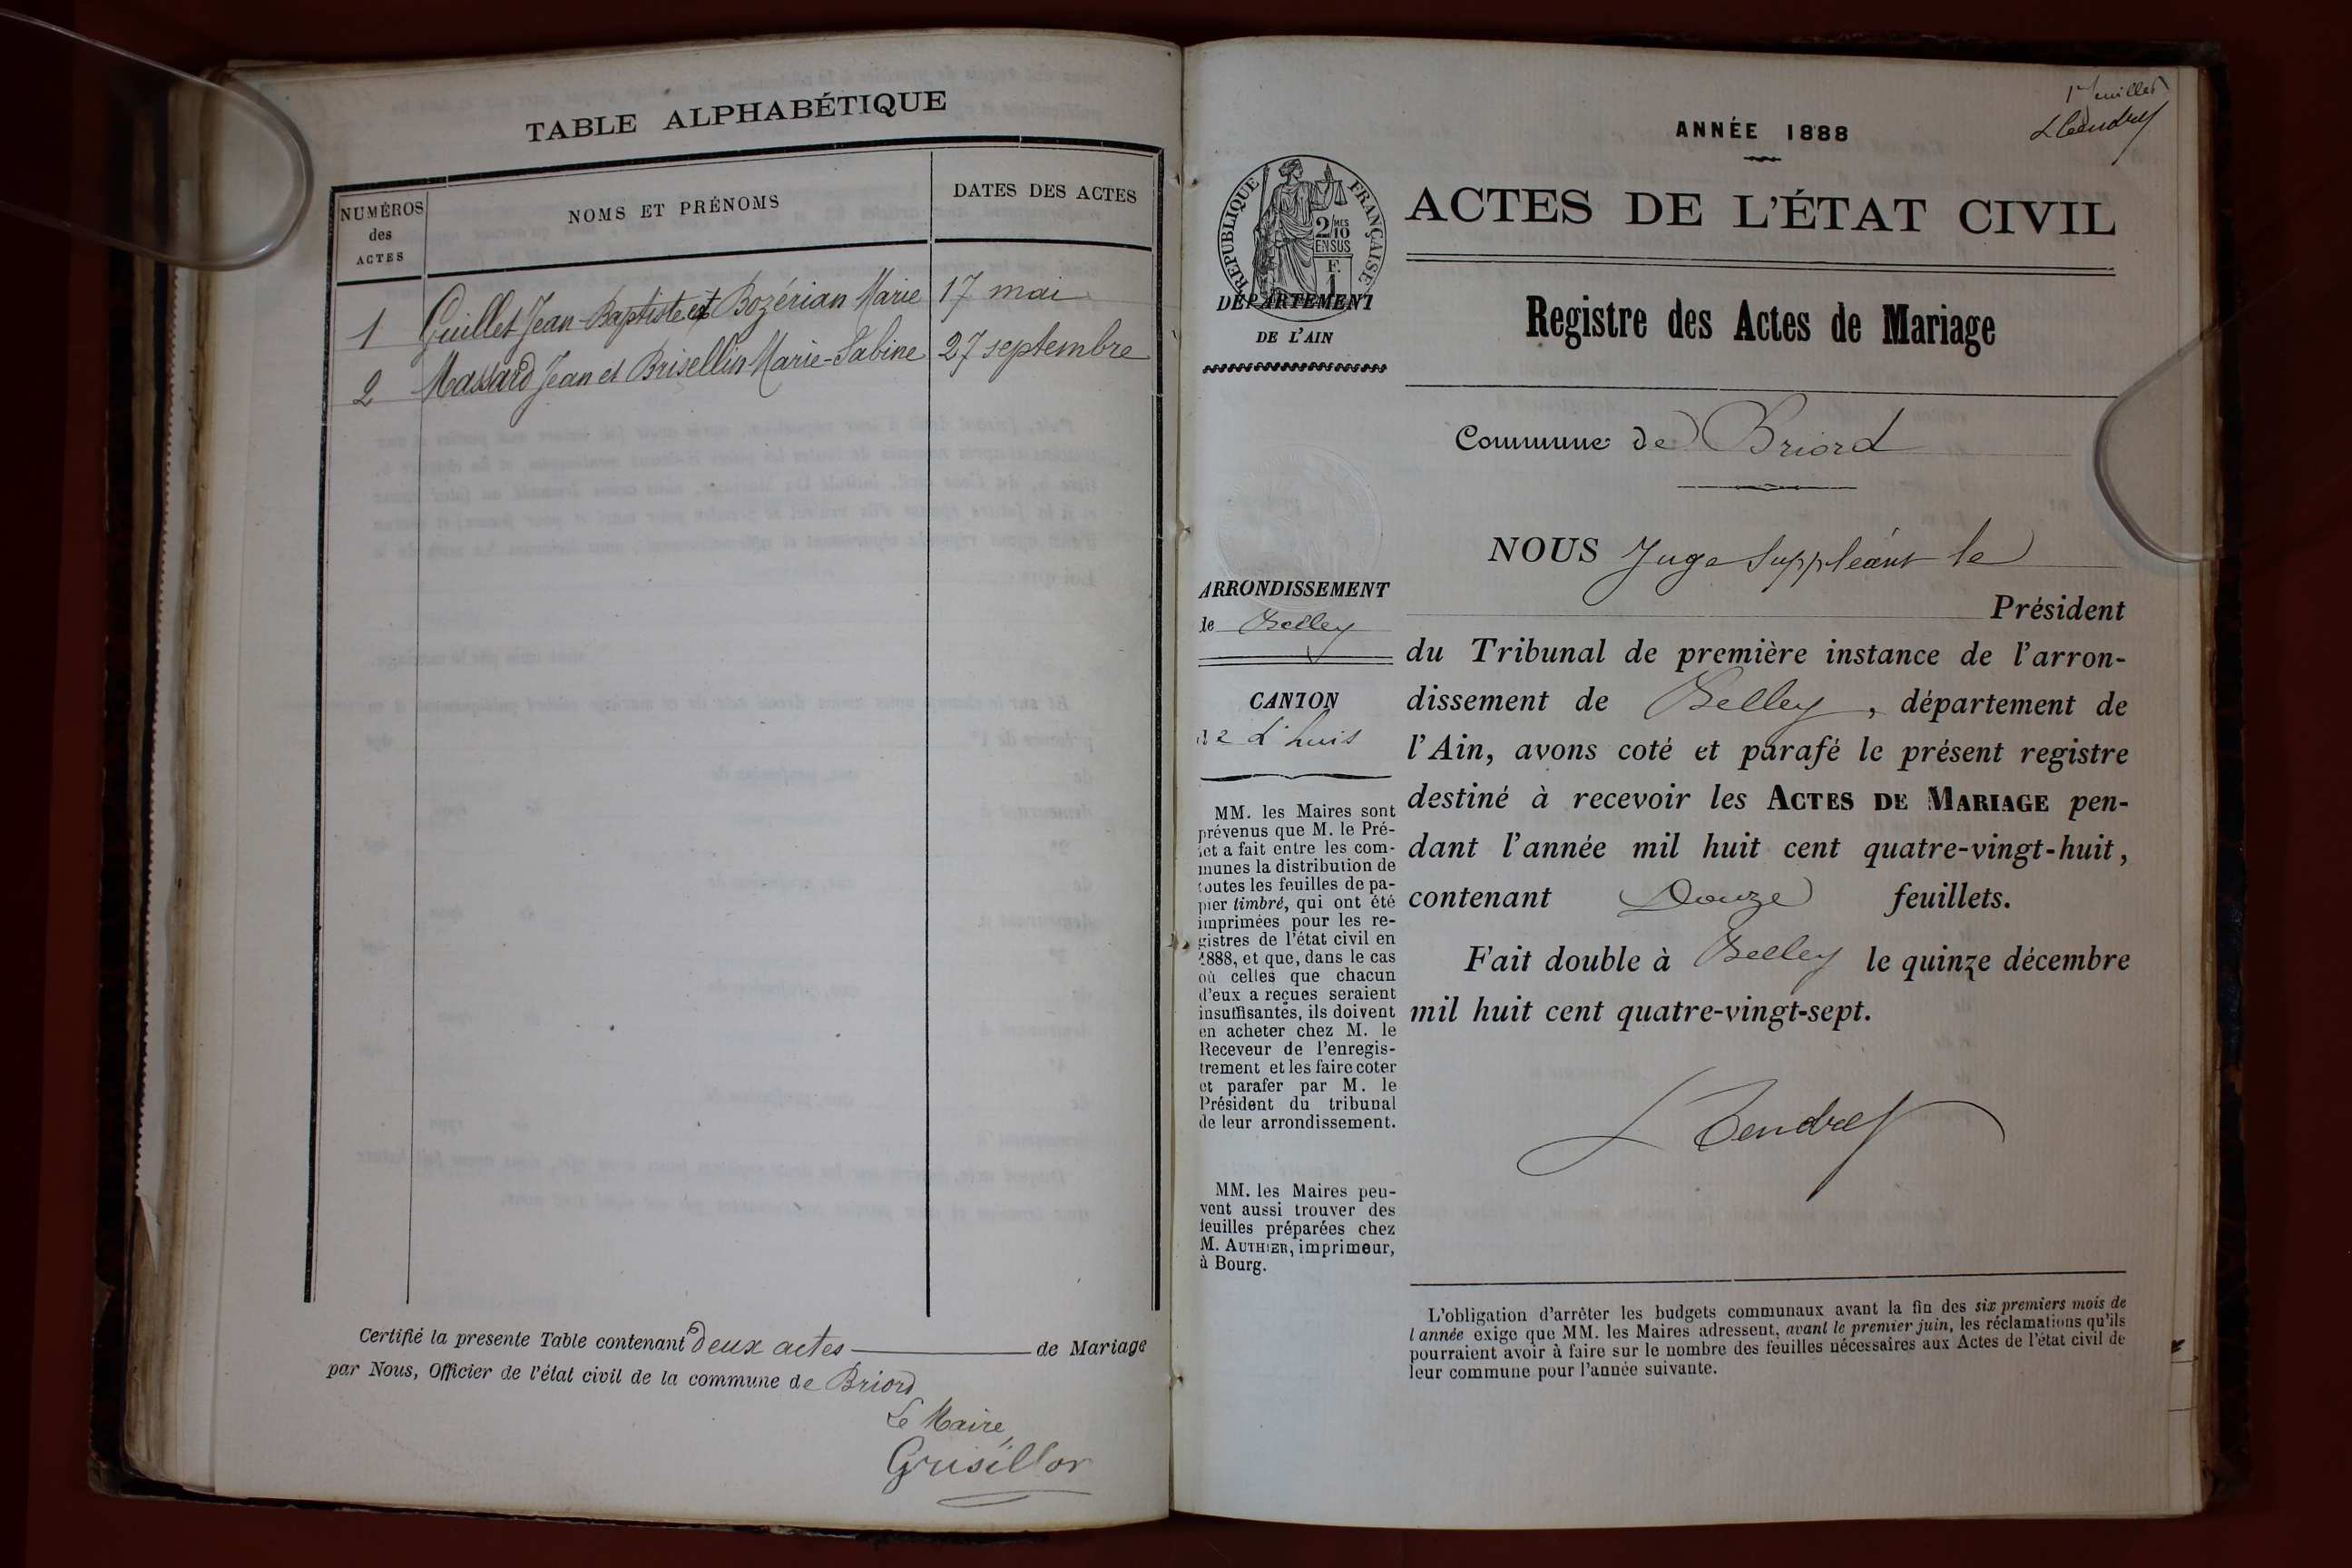 TABLE ALPHABÉTIQUE
NUMÉROS
des
ACTES
NOMS ET PRÉNOMS
DATES DES ACTES
1 Guillet Jean-Baptiste et Bozérian Marie 17 mai
2 Massard Jean et Brisellin Marie-Sabine 27 septembre
Certifié la presente Table contenant deux actes de Mariage
par Nous, Officier de l'état civil de la commune de Briord
Le Maire,
Grisillon
1er feuillet
ANNÉE 1888
RÉPUBLIQUE FRANÇAISE
2/10 MES
EN SUS
F.
1
ACTES DE L'ÉTAT CIVIL
DÉPARTEMENT
DE L'AIN
Registre des Actes de Mariage
Commune de Briord
NOUS Juge Suppléant le
Président
du Tribunal de première instance de l'arron-
dissement de Belley, département de
l'Ain, avons coté et parafé le présent registre
destiné à recevoir les ACTES DE MARIAGE pen-
dant l'année mil huit cent quatre-vingt-huit,
contenant Douze feuillets.
Fait double à Belley le quinze décembre
mil huit cent quatre-vingt-sept.
ARRONDISSEMENT
de Belley
CANTON
de L'huis
MM. les Maires sont
prévenus que M. le Pré-
fet a fait entre les com-
munes la distribution de
toutes les feuilles de pa-
pier timbré, qui ont été
imprimées pour les re-
gistres de l'état civil en
1888, et que, dans le cas
où celles que chacun
d'eux a reçues seraient
insuffisantes, ils doivent
en acheter chez M. le
Receveur de l'enregis-
trement et les faire coter
et parafer par M. le
Président du tribunal
de leur arrondissement.
MM. les Maires peu-
vent aussi trouver des
feuilles préparées chez
M. AUTHIER, imprimeur,
à Bourg.
L'obligation d'arrêter les budgets communaux avant la fin des six premiers mois de
l'année exige que MM. les Maires adressent, avant le premier juin, les réclamations qu'ils
pourraient avoir à faire sur le nombre des feuilles nécessaires aux Actes de l'état civil de
leur commune pour l'année suivante.